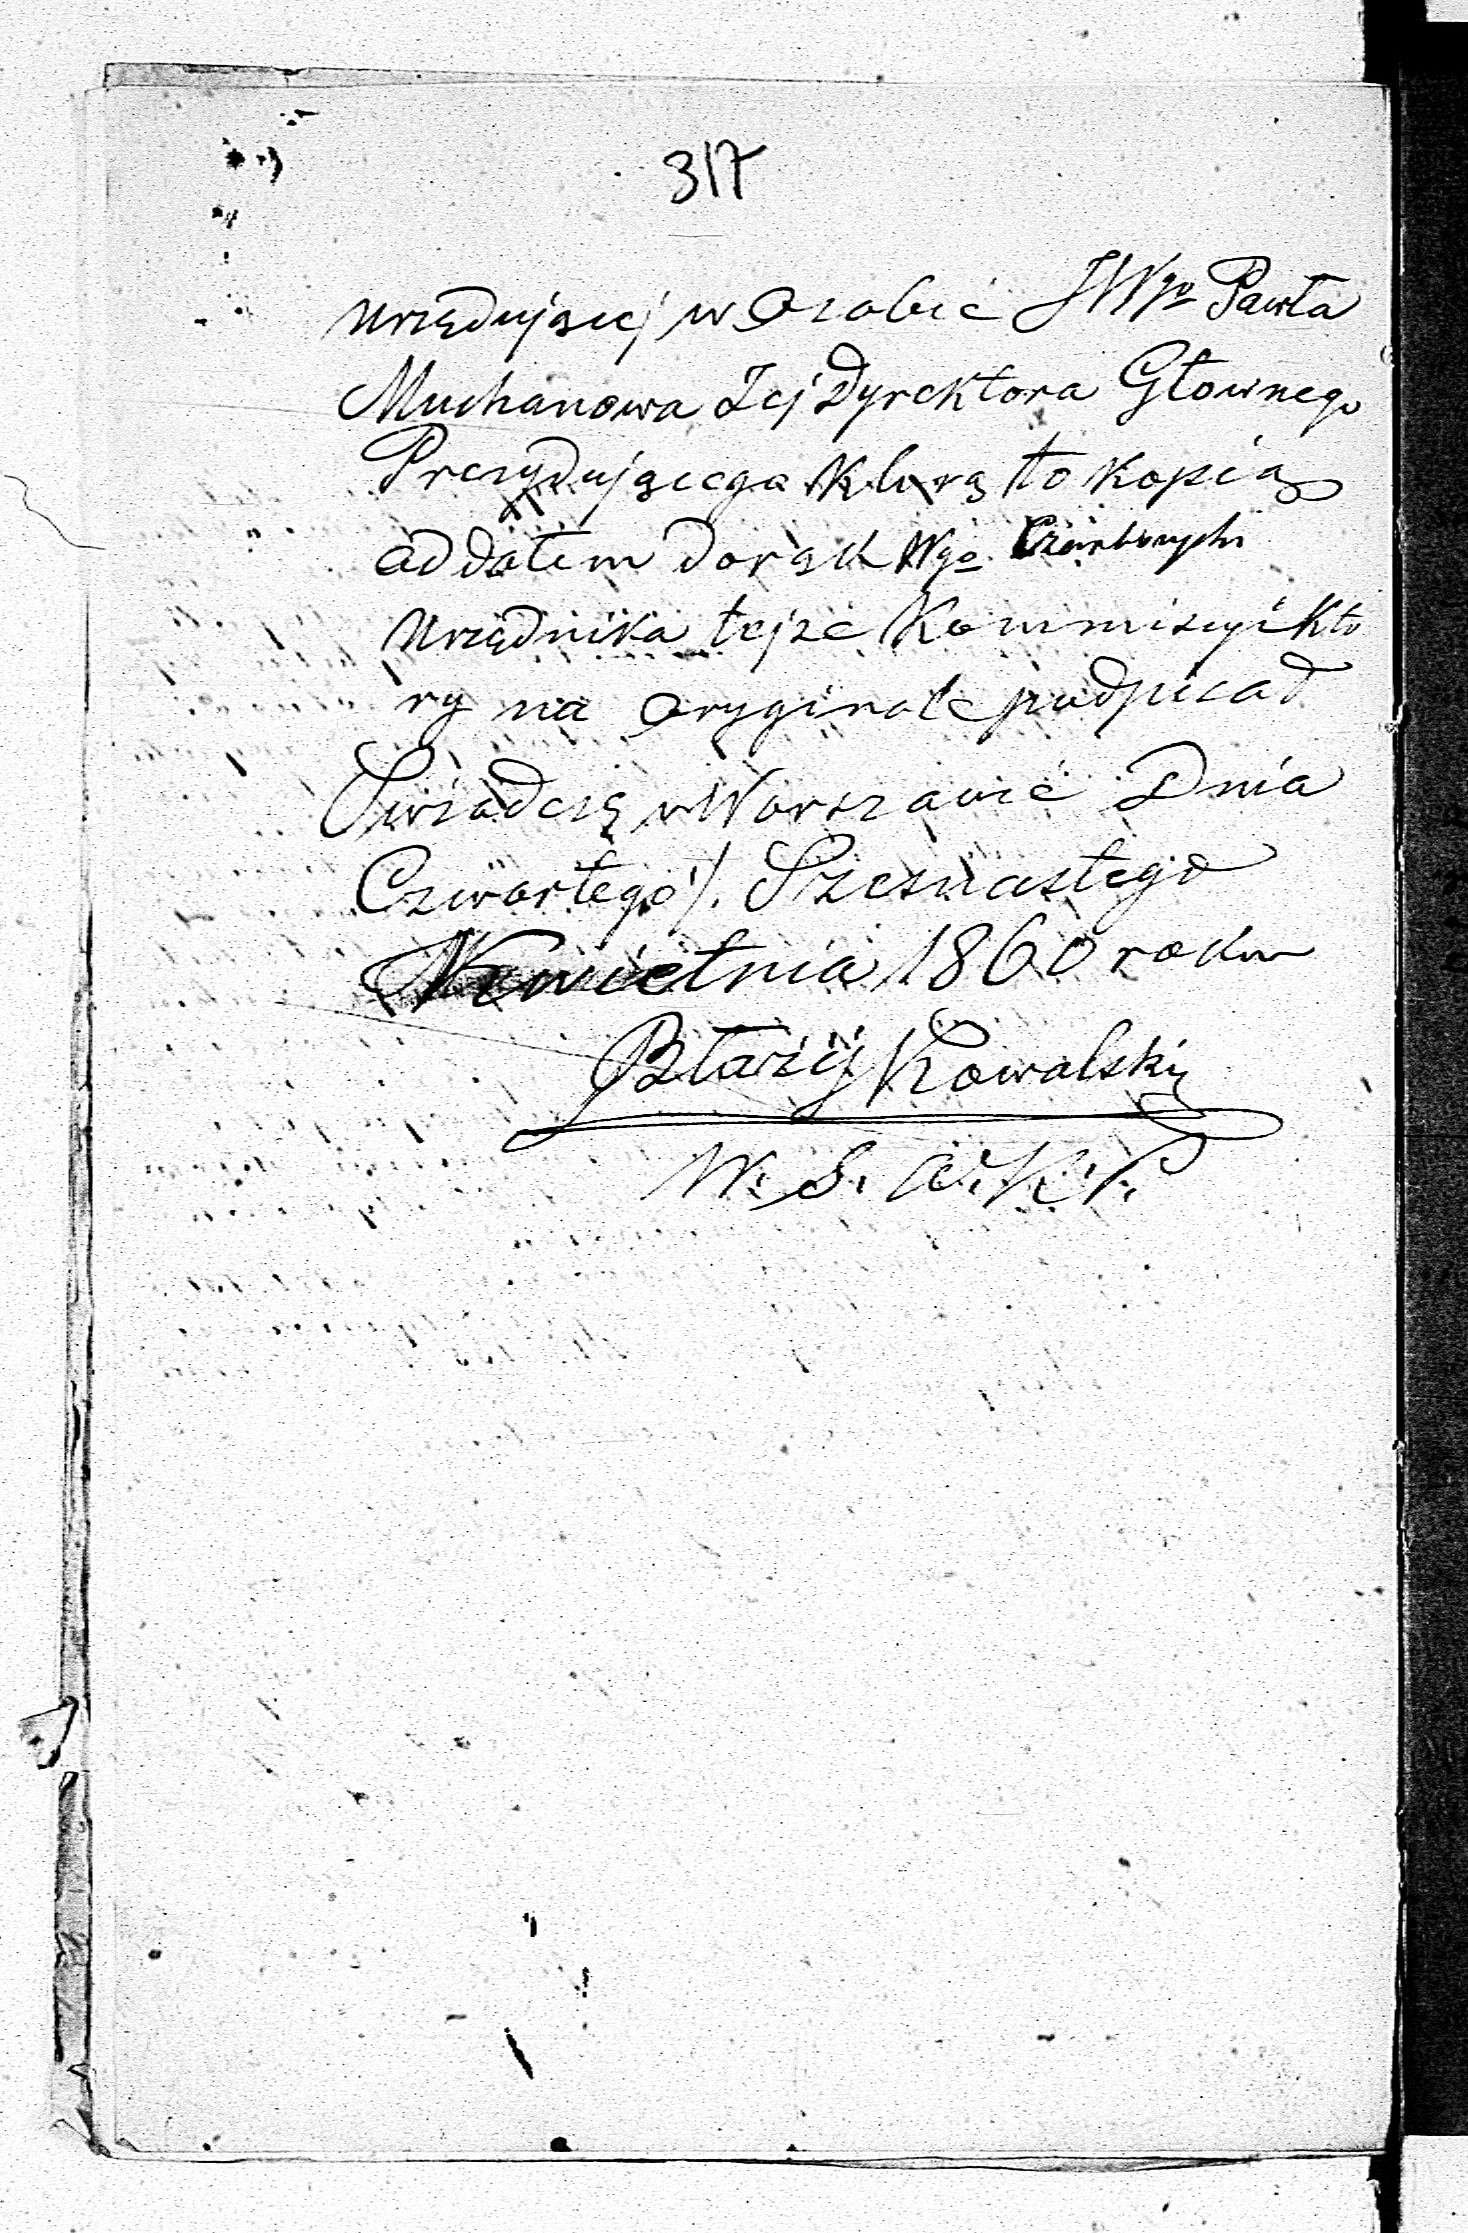 317
urzędującej w Osobie JWgo Pawła
Muchanowa Jej Dyrektora Głownego
Prezydującego którą to kopią
oddałem do rąk Wgo
urzędnika tejże Kommisyi któ
ry na Oryginale podpisał
Świadczę w Warszawie Dnia
Czwartego /. Szesnastego
Kwietnia 1860 roku
Błażej Kowalski
W. S. A. K. P.